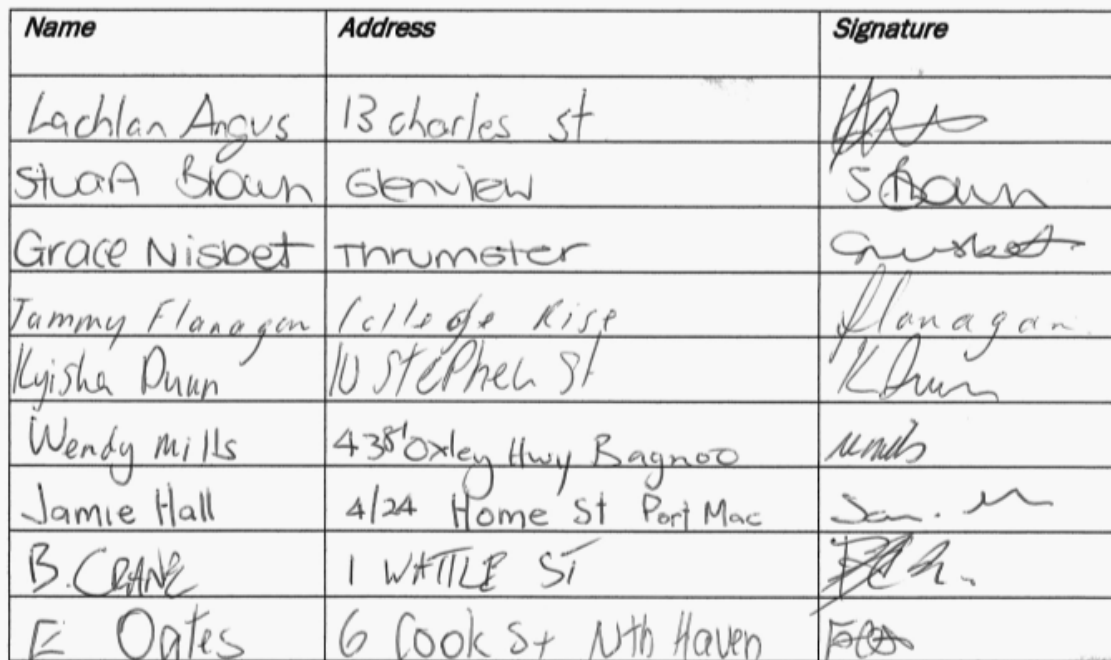 Name Address Signature
Lachlan Angus 13 charles st
Stuart Brown Glenview S Brown
Grace Nisbet Thrumster GNisbet
Tammy Flanagan College Rise flanagan
Kyisha Dunn 10 Stephen St K Dunn
Wendy Mills Oxley Hwy Bagnoo
Jamie Hall 4/24 Home St Port Mac
B. CRANE 1 WATTLE ST
E Oates 6 Cook St Nth Haven